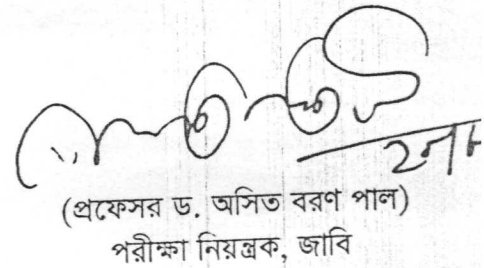 (প্রফেসর ড. অসিত বরণ পাল)
পরীক্ষা নিয়ন্ত্রক, জাবি